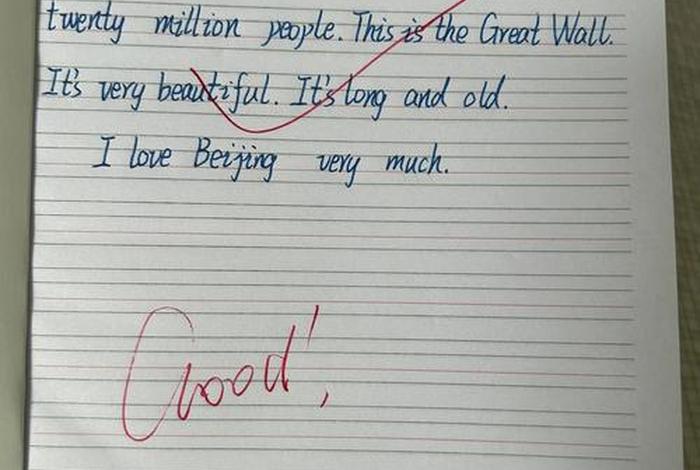 twenty million people. This is the Great Wall.
It's very beautiful. It's long and old.
I love Beijing very much.
Good!